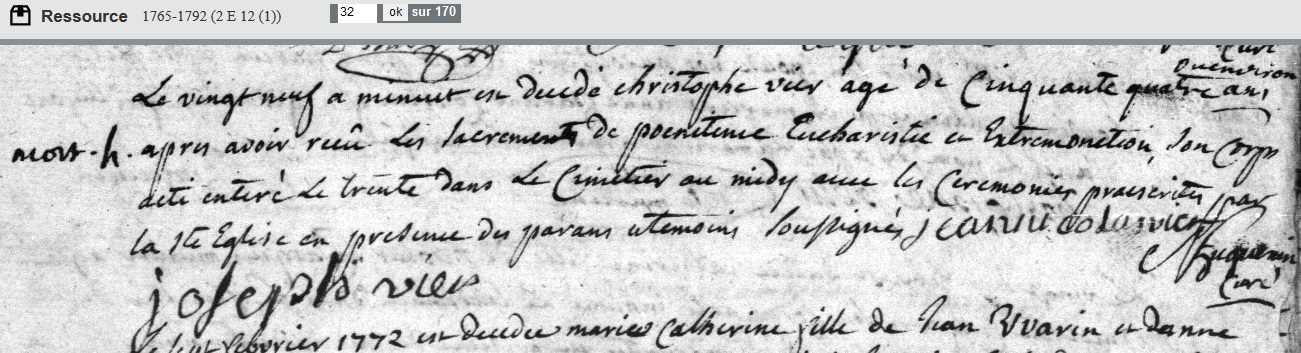 Ressource 1765-1792 (2 E 12 (1)) 32 ok sur 170
curé
ou environ
Le vingt neuf a minuit est decedé christophe vier agé de Cinquante quatre ans
mort. h. apres avoir recû Les Sacrements de poenitence Eucharistie et Extremonction, Son Corps
a eté enteré Le trente dans Le Cimetier au midy avec les Ceremonies praescrites par
la Ste Eglise en presence des parans et temoins Soussignés jean nicola vier
Huguenin
Curé
joseph vier
Le sept fevrier 1772 est decedee marie Catherine fille de Jean Warin et danne